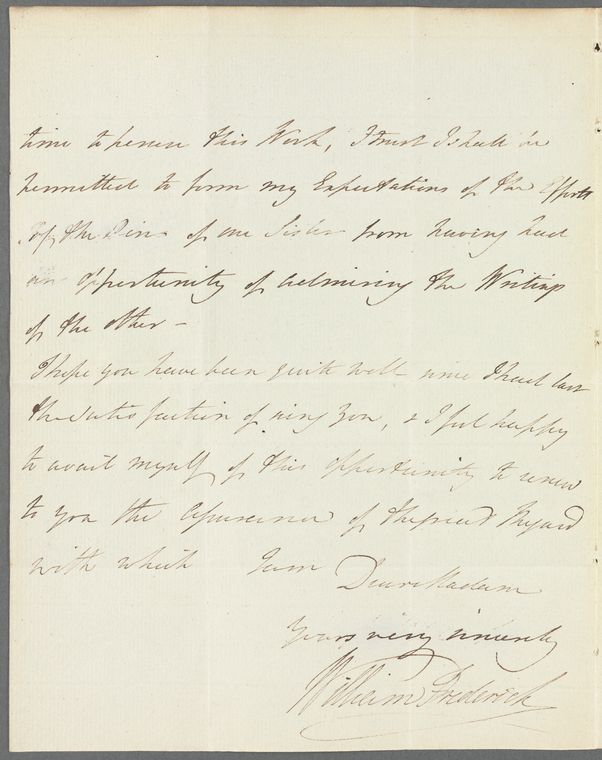 time to peruse this Work, I trust I shall be
permitted to form my Expectations of the Efforts
of the Pen of one Sister from having had
an opportunity of admiring the Writings
of the other –
I hope you have been quite well since I had last
the satisfaction of seeing You, & I feel happy
to avail myself of this opportunity to renew
to you the assurance of the great Regard
with which I am Dear Madam
Yours very sincerely
William Frederick